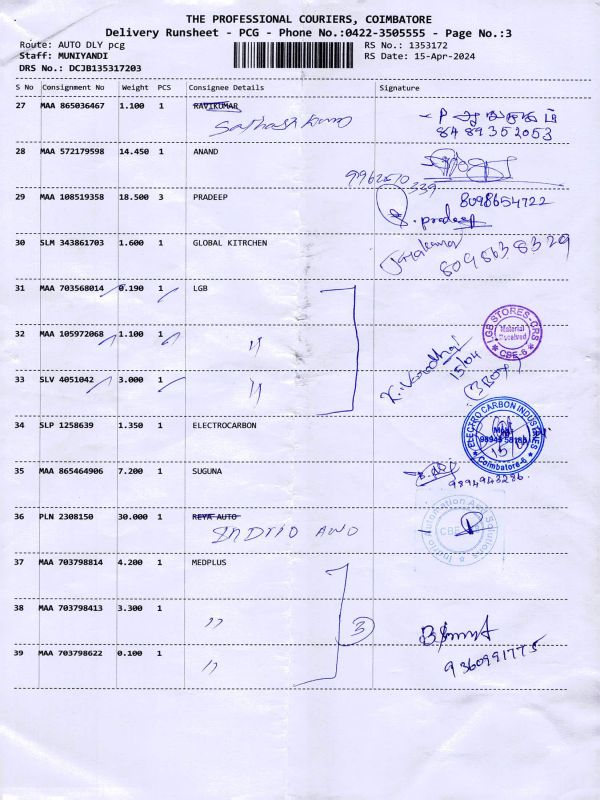 THE PROFESSIONAL COURIERS, COIMBATORE
Delivery Runsheet - PCG - Phone No.:0422-3505555 - Page No.:3
Route: AUTO DLY pcg RS No.: 1353172
Staff: MUNIYANDI RS Date: 15-Apr-2024
DRS No.: DCJB135317203
S No Consignment No Weight PCS Consignee Details Signature
27 MAA 865036467 1.100 1 RAVIKUMAR
8489352053
28 MAA 572179598 14.450 1 ANAND
9962510339
29 MAA 108519358 18.500 3 PRADEEP 8098654722
S. pradeep
30 SLM 343861703 1.600 1 GLOBAL KITRCHEN
8098638329
31 MAA 703568014 0.190 1 LGB
LGB STORES-CRS
Material
Received
CBE-6
32 MAA 105972068 1.100 1 "
15/04
33 SLV 4051042 3.000 1 "
34 SLP 1258639 1.350 1 ELECTROCARBON
ELECTRO CARBON INDUSTRIES
Coimbatore-6
35 MAA 865464906 7.200 1 SUGUNA
9894943286
36 PLN 2308150 30.000 1 REYA AUTO
INDRIO AWO
37 MAA 703798814 4.200 1 MEDPLUS
38 MAA 703798413 3.300 1 "
3
39 MAA 703798622 0.100 1 "
9360991775